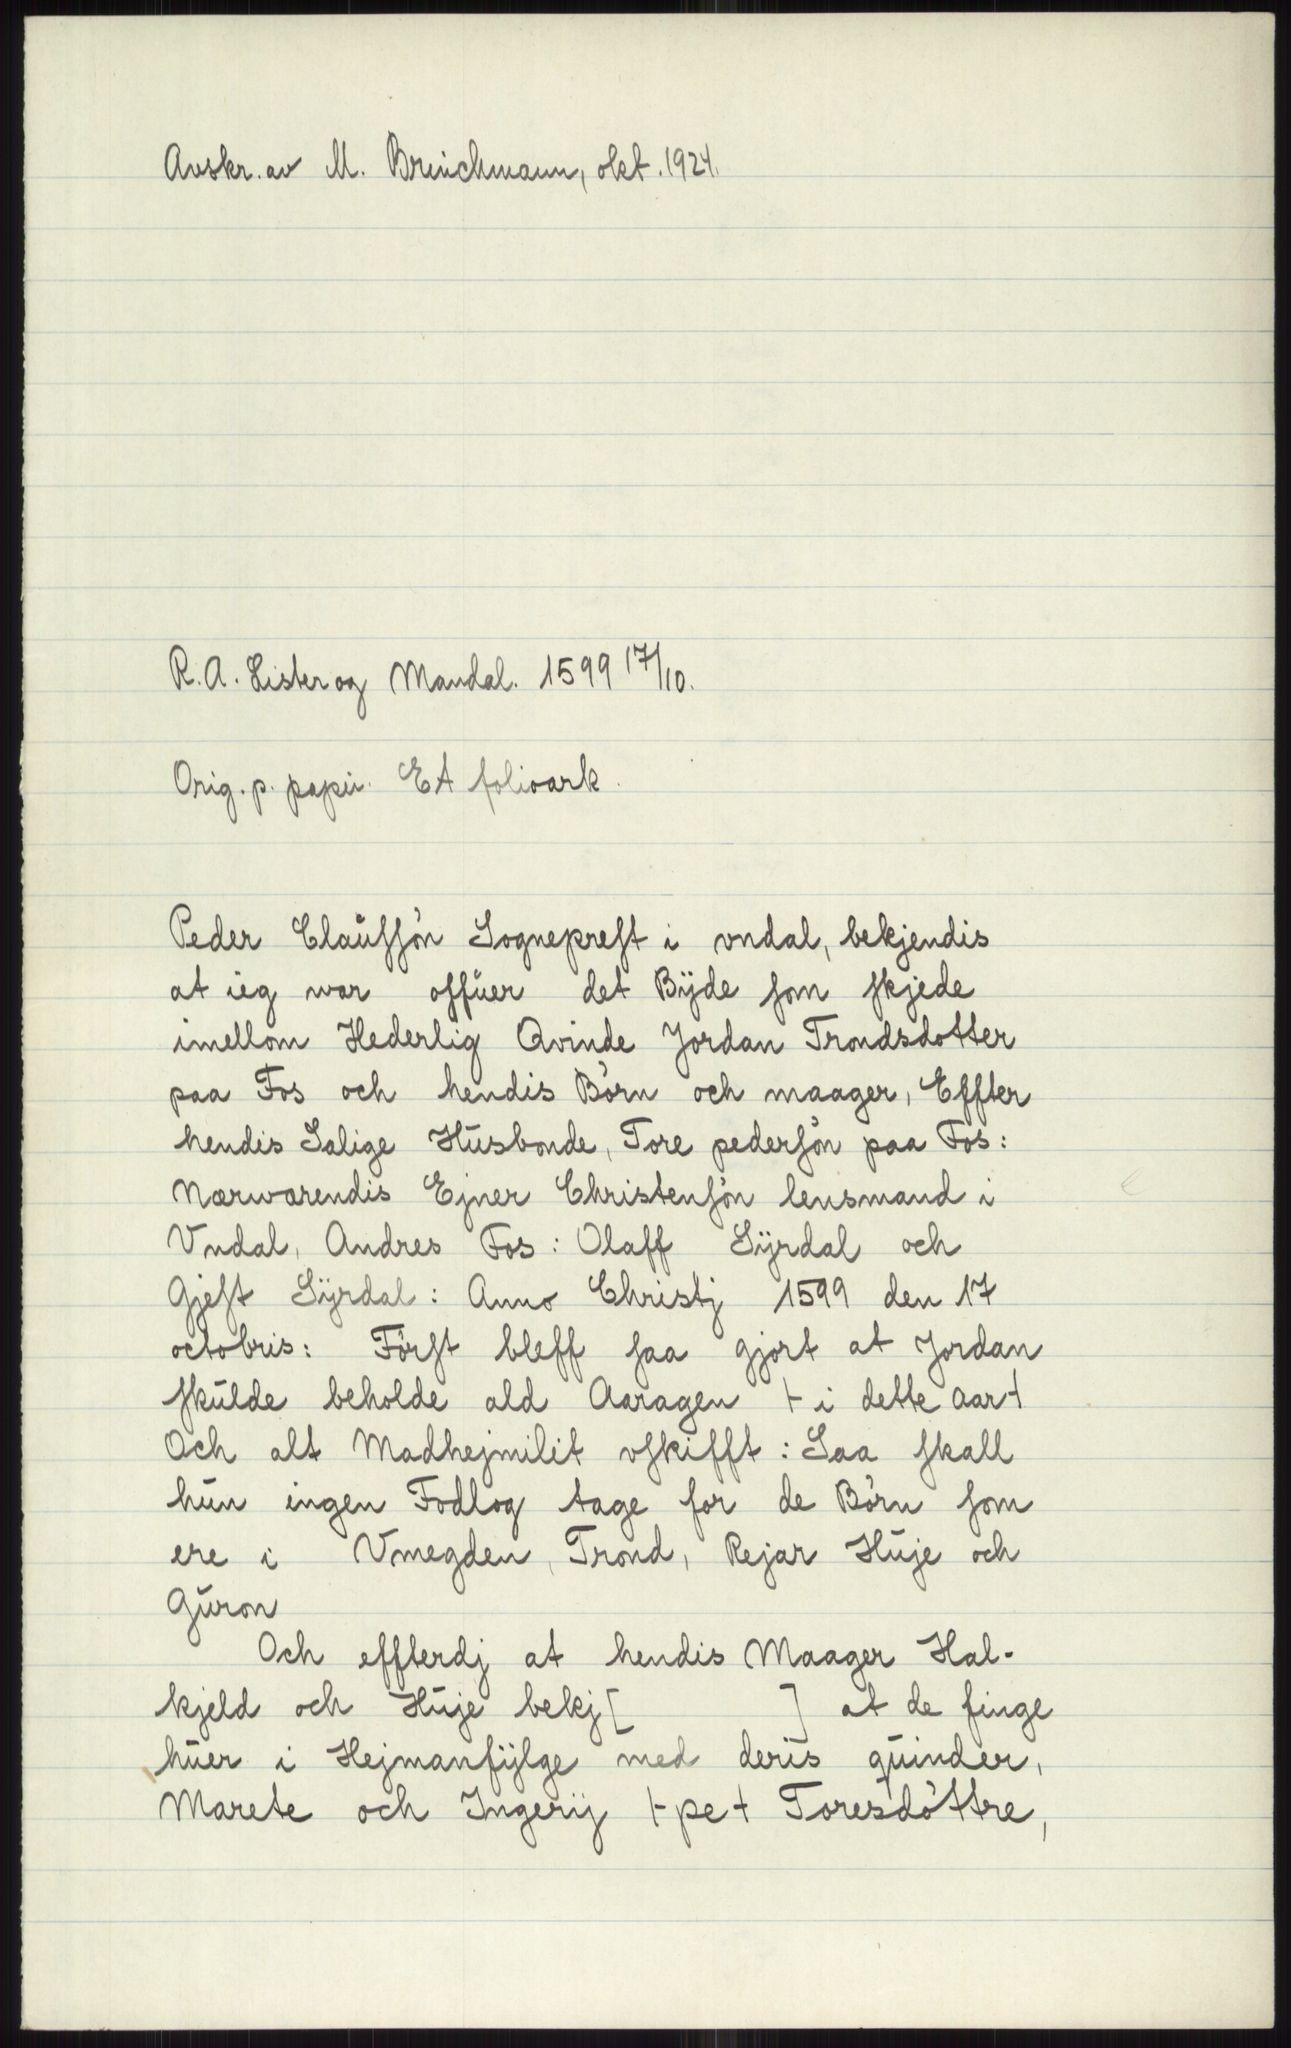 Avskr. av M. Brinchmann, okt. 1924.
R.A. Lister og Mandal. 1599 17/10.
Orig. p. papir. Et folioark.
Peder Claŭſſøn Sogneprest i vndal, bekjendis
at ieg war offŭer det Bÿde ſom ſkjede
imellom Hederlig Qvinde Jordan Trondsdotter
paa Fos och hendis Børn och maager, Effter
hendis Salige Hŭsbonde, Tore pederſøn paa Fos:
Nærwærendis Ejner Christenſøn lensmand i
Vndal, Andres Fos: Olaff Sÿrdal och
Gjeſt Sÿrdal: Anno Christj 1599 den 17
octobris: Førſt bleff ſaa gjort at Jordan
ſkŭlde beholde ald Aaragen ⊢ i dette aar ⊣
Och alt Madhejmilit vſkifft: Saa ſkall
hŭn ingen Fodlog tage for de Børn ſom
ere i Vmegden, Trond, Rejar Hŭje och
Gŭron
Och effterdj at hendis Maager Hal-
kjeld och Hŭje bekj[ ] at de finge
hŭer i Hejmanfÿlge med deris qŭinder,
Marete och Ingerij ⊢ pe ⊣ Toresdøttre,